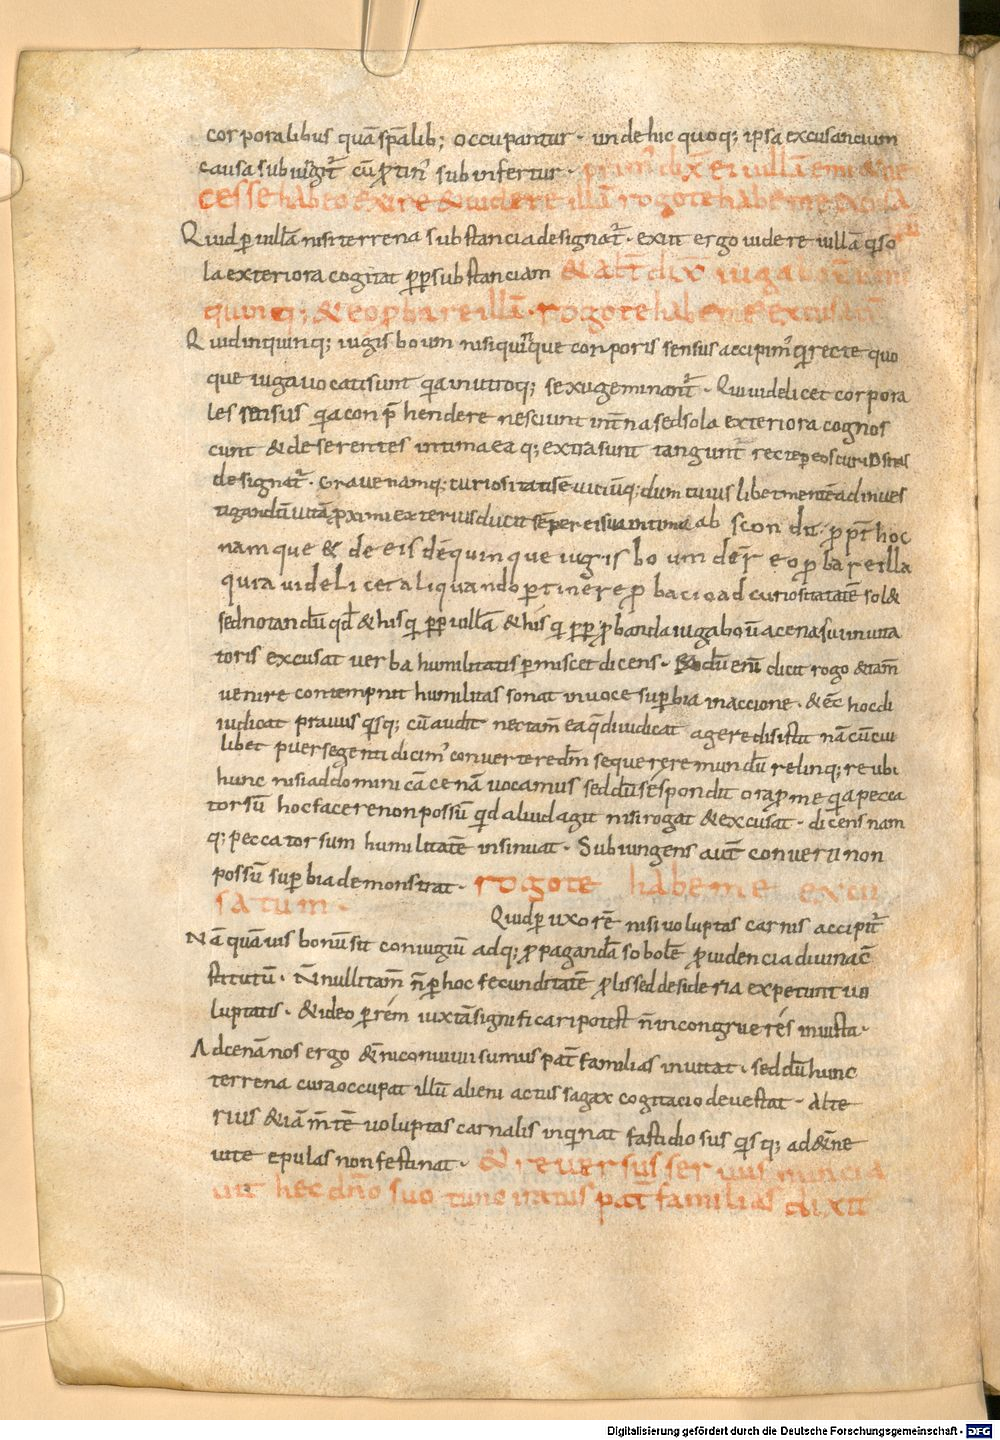 corporalibus quā sp̄alib; occupantur · unde hic quoq; ipsa excusancium
causa subiungit̄ cū protin̄ subinfertur · prim' dix̄ ei uillā emi & ne
cesse habeo exire & uidere illā rogo te habe me excusa
tū
Quid per uillā nisi terrena substancia designat̄ · exiit ergo uidere uillā q̄ so
la exteriora cogitat ꝓp̄ substanciam & alt̄ dix̄ iuga boū emi
quinq; & eo ꝓbare illā · rogo te habe me excusatū
Quid in quinq; iugis boum nisi quinque corporis sensus accipim' q̄ recte quo
que iuga uocati sunt q̄a in utroq; sexu geminant̄ · Qui uidelicet corpora
les sensus q̄a conp̄hendere nesciunt int̄na sed sola exteriora cognos
cunt & deserentes intima ea q; extra sunt tangunt̄ recte per eos curiositas
designat̄ · Graue namq; curiositatis ē uiciū q; dum cuius libet mentē ad inues
tigandū uitā ꝓximi exterius ducit sēper ei sua intima abscondit · ꝓpt̄ hoc
namque & de eis dē quinque iugis boum der̄ eo ꝓbare illa
q̄ura uidelicet aliquando pertinere ꝓbacio ad curiositatē sol&
sed notandū qd̄ & his qi ꝓp̄ uillā & his qi ꝓp̄ ꝓbanda iuga boū a cena sui inuita
toris excusat uerba humilitatis permiscet dicens · dū enī dicit rogo & tam̄
uenire contempnit humilitas sonat in uoce superbia in accione · & ec̄ hoc di
iudicat prauus q̄sq; cū audit nec tam̄ ea q̄ diiudicat agere desistit nā cū cui
libet puerse agenti dicim' conuertere dm̄ sequere mundū relinq; re ubi
hunc nisi ad dominicā cenā uocamus sed dū respondit ora ꝓ me q̄a pecca
tor sū hoc facere non possū q̄d aliud agit nisi rogat & excusat · dicens nam
q; peccator sum humilitatē insinuat · Subiungens aut̄ conuerti non
possū superbia demonstrat · rogo te habe me excu
satum ·
Quid per uxorē nisi uoluptas carnis accipit̄
Nā quāuis bonū sit coniugiū adq; ꝓpagandā sobolē ꝓuidencia diuina c̄
stitutū · N̄nulli tam̄ n̄ per hoc fecunditatē ꝓlis sed desideria expetunt uo
luptatis · & ideo per rem iuxtā significari potest n̄ incongrue res iniusta ·
Ad cenā nos ergo &n̄i conuiuii sumus pat̄ familias inuitat · sed dū hunc
terrena cura occupat illū alieni actus sagax cogitacio deuestat · Alte
rius &iā m̄tē uoluptas carnalis inq̄nat fastidiosus q̄sq; ad &n̄e
uite epulas non festinat · & reuersus seruus nuncia
uit hec dn̄o suo tunc iratus pat̄ familias dixit
Digitalisierung gefördert durch die Deutsche Forschungsgemeinschaft - DFG